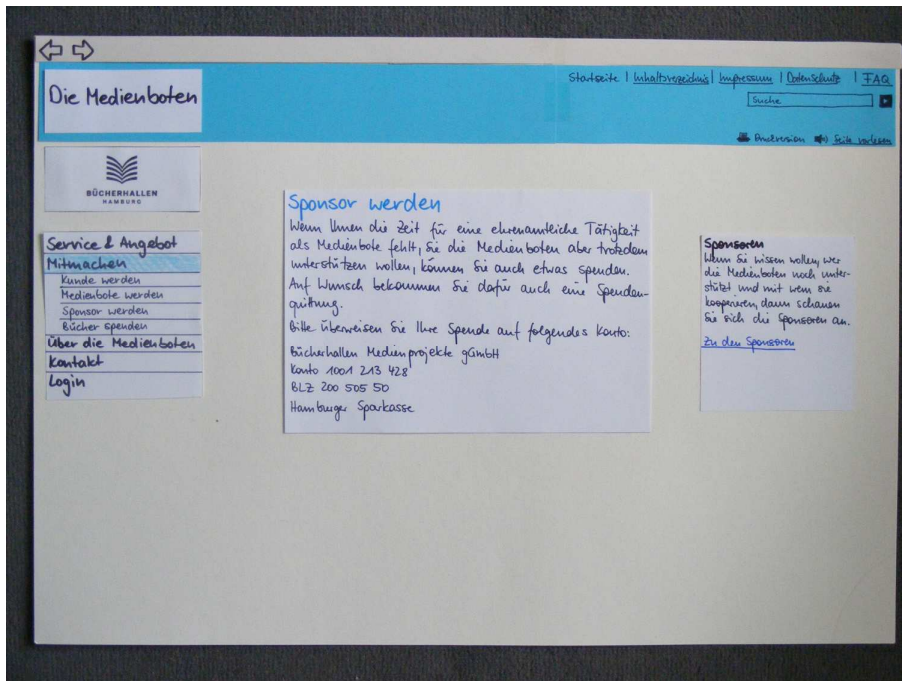 Die Medienboten
Startseite | Inhaltsverzeichnis | Impressum | Datenschutz | FAQ
Suche
Druckversion Seite vorlesen
BÜCHERHALLEN
HAMBURG
Service & Angebot
Mitmachen
Kunde werden
Medienbote werden
Sponsor werden
Bücher spenden
Über die Medienboten
Kontakt
Login
Sponsor werden
Wenn Ihnen die Zeit für eine ehrenamtliche Tätigkeit
als Medienbote fehlt, Sie die Medienboten aber trotzdem
unterstützen wollen, können Sie auch etwas spenden.
Auf Wunsch bekommen Sie dafür auch eine Spenden-
quittung.
Bitte überweisen Sie Ihre Spende auf folgendes Konto:
Bücherhallen Medienprojekte gGmbH
Konto 1001 213 428
BLZ 200 505 50
Hamburger Sparkasse
Sponsoren
Wenn Sie wissen wollen, wer
die Medienboten noch unter-
stützt und mit wem sie
kooperieren, dann schauen
Sie sich die Sponsoren an.
Zu den Sponsoren